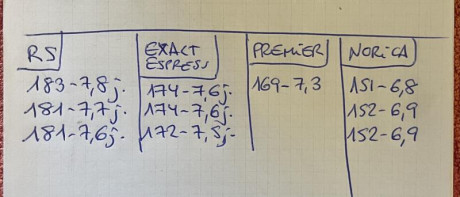 RS
183-7,8j.
181-7,7j.
181-7,6j.
EXACT
ESPRESS
174-7,6j.
174-7,6j.
172-7,5j.
PREMIER
169-7,3
NORICA
151-6,8
152-6,9
152-6,9